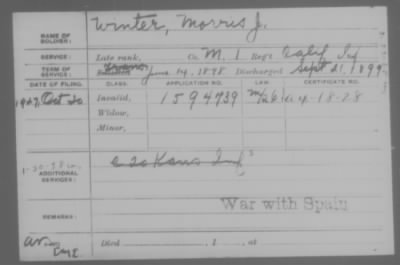 NAME OF SOLDIER: Winter, Morris J.
SERVICE: Late rank, Co. M, 1 Reg't Calif Inf
TERM OF SERVICE: Trans June 14, 1898, Discharged Sept 21, 1899
DATE OF FILING. CLASS. APPLICATION NO. LAW. CERTIFICATE NO.
1927, Oct 20 Invalid, 1594739
Widow,
Minor,
ADDITIONAL SERVICES: Kans Inf
War with Spain
REMARKS:
Died , 1 , at